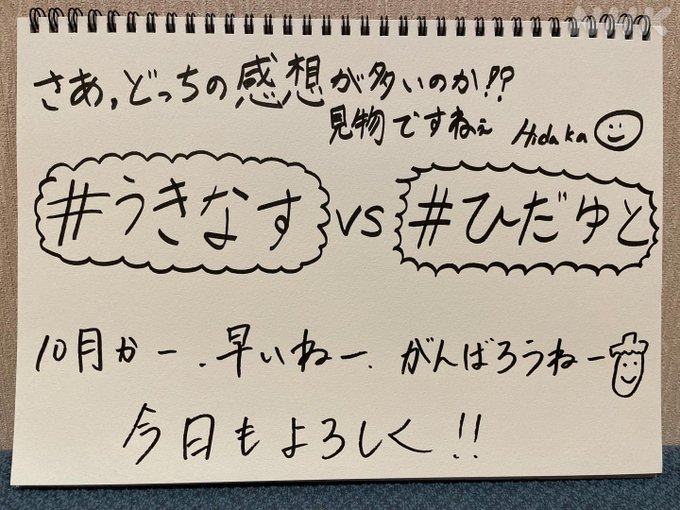 NHK
さあ,どっちの感想が多いのか!!??
見物ですねぇ Hidaka
#うきなす vs #ひだゆと
10月かー.早いねー.がんばろうねー
今日もよろしく!!